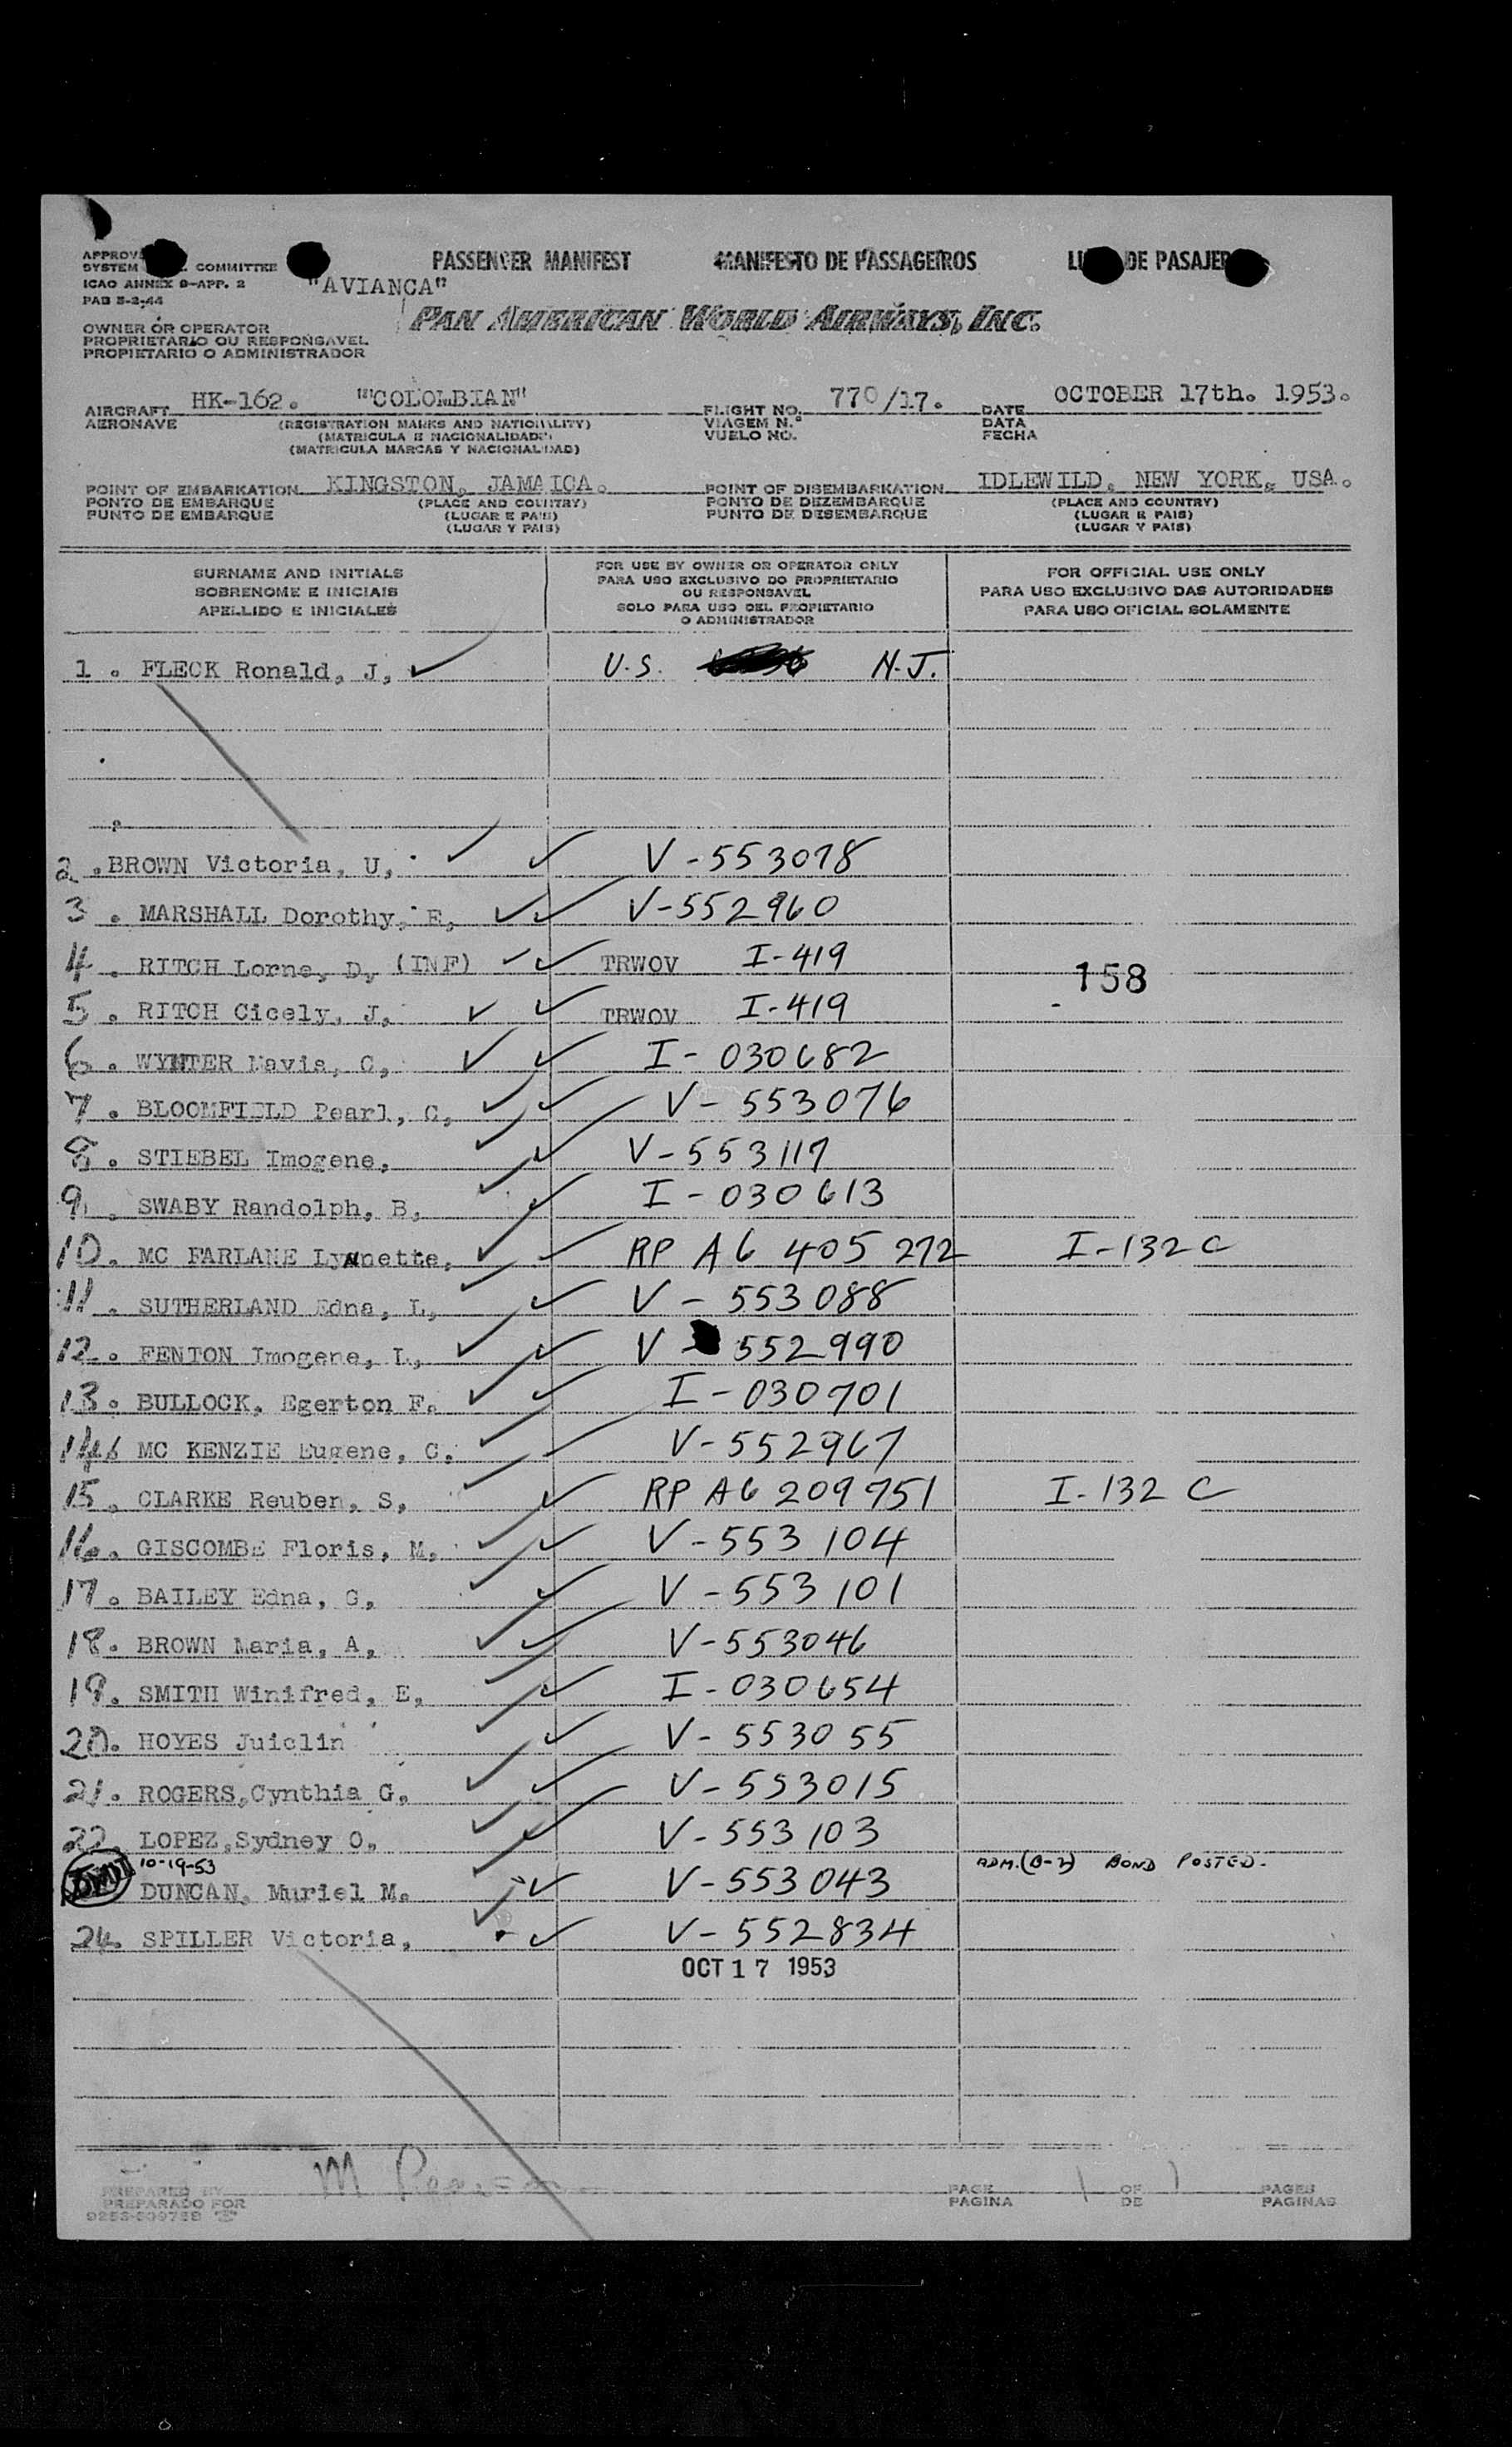 APPROV
SYSTEM COMMITTEE
ICAO ANNEX 9-APP. 2
PAB 5-2-44
PASSENGER MANIFEST MANIFESTO DE PASSAGEIROS DE PASAJER
"AVIANCA"
PAN AMERICAN WORLD AIRWAYS, INC.
OWNER OR OPERATOR
PROPRIETARIO OU RESPONSAVEL
PROPIETARIO O ADMINISTRADOR
AIRCRAFT HK-162. "COLOMBIAN" FLIGHT NO. 770/17. DATE OCTOBER 17th. 1953.
AERONAVE (REGISTRATION MARKS AND NATIONALITY) VIAGEM N.º DATA
(MATRICULA E NACIONALIDADE) VUELO NO. FECHA
(MATRICULA MARCAS Y NACIONALIDAD)
POINT OF EMBARKATION KINGSTON, JAMAICA. POINT OF DISEMBARKATION IDLEWILD, NEW YORK, USA.
PONTO DE EMBARQUE (PLACE AND COUNTRY) PONTO DE DEZEMBARQUE (PLACE AND COUNTRY)
PUNTO DE EMBARQUE (LUGAR E PAIS) PUNTO DE DESEMBARQUE (LUGAR E PAIS)
(LUGAR Y PAIS) (LUGAR Y PAIS)
SURNAME AND INITIALS
SOBRENOME E INICIAIS
APELLIDO E INICIALES
FOR USE BY OWNER OR OPERATOR ONLY
PARA USO EXCLUSIVO DO PROPRIETARIO
OU RESPONSAVEL
SOLO PARA USO DEL PROPIETARIO
O ADMINISTRADOR
FOR OFFICIAL USE ONLY
PARA USO EXCLUSIVO DAS AUTORIDADES
PARA USO OFICIAL SOLAMENTE
1. FLECK Ronald, J, U.S. N.J.
2. BROWN Victoria, U, V-553078
3. MARSHALL Dorothy, E, V-552960
4. RITCH Lorne, D, (INF) TRWOV I-419
158
5. RITCH Cicely, J, TRWOV I-419
6. WYNTER Mavis, C, I-030682
7. BLOOMFIELD Pearl, C, V-553076
8. STIEBEL Imogene, V-553117
9. SWABY Randolph, B, I-030613
10. MC FARLANE Lynnette, RP A6 405 272 I-132 C
11. SUTHERLAND Edna, L, V-553088
12. FENTON Imogene, L, V 552990
13. BULLOCK, Egerton F. I-030701
14. MC KENZIE Eugene, C. V-552967
15. CLARKE Reuben, S, RP A6 209751 I-132 C
16. GISCOMBE Floris, M, V-553104
17. BAILEY Edna, G, V-553101
18. BROWN Maria, A, V-553046
19. SMITH Winifred, E, I-030654
20. HOYES Juiclin V-553055
21. ROGERS, Cynthia G, V-553015
22. LOPEZ, Sydney O, V-553103
10-19-53 ADM. (B-2) BOND POSTED.
OMIT DUNCAN, Muriel M. V-553043
24. SPILLER Victoria, V-552834
OCT 17 1953
PREPARED BY M PAGE 1 OF 1 PAGES
PREPARADO FOR PAGINA DE PAGINAS